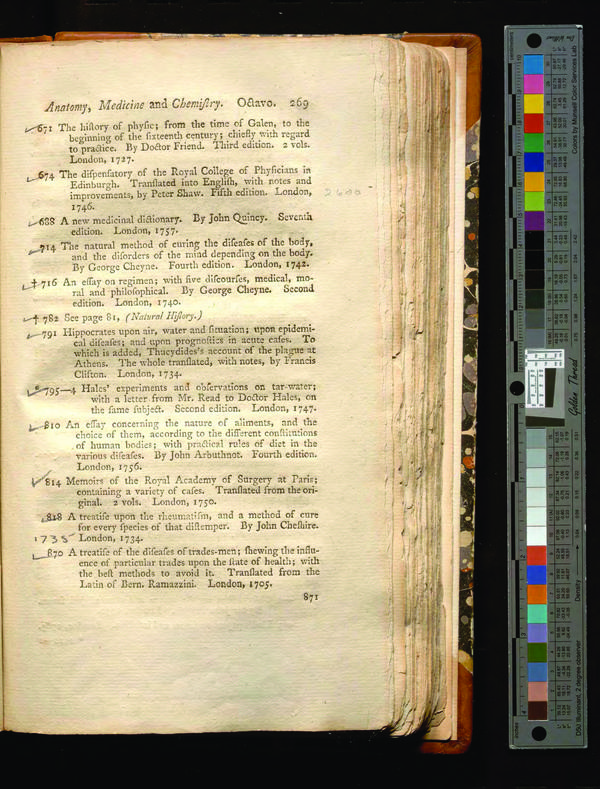 Anatomy, Medicine and Chemiſtry. Octavo. 269
671 The hiſtory of phyſic; from the time of Galen, to the
beginning of the ſixteenth century; chiefly with regard
to practice. By Doctor Friend. Third edition. 2 vols.
London, 1727.
674 The diſpenſatory of the Royal College of Phyſicians in
Edinburgh. Tranſlated into Engliſh, with notes and
improvements, by Peter Shaw. Fifth edition. London,
1746.
688 A new medicinal dictionary. By John Quincy. Seventh
edition. London, 1757.
714 The natural method of curing the diſeaſes of the body,
and the diſorders of the mind depending on the body.
By George Cheyne. Fourth edition. London, 1742.
† 716 An eſſay on regimen; with five diſcourſes, medical, mo-
ral and philoſophical. By George Cheyne. Second
edition. London, 1740.
† 782 See page 81, (Natural Hiſtory.)
791 Hippocrates upon air, water and ſituation; upon epidemi-
cal diſeaſes; and upon prognoſtics in acute caſes. To
which is added, Thucydides's account of the plague at
Athens. The whole tranſlated, with notes, by Francis
Clifton. London, 1734.
* 795—4 Hales' experiments and obſervations on tar-water;
with a letter from Mr. Read to Doctor Hales, on
the ſame ſubject. Second edition. London, 1747.
810 An eſſay concerning the nature of aliments, and the
choice of them, according to the different conſtitutions
of human bodies; with practical rules of diet in the
various diſeaſes. By John Arbuthnot. Fourth edition.
London, 1756.
814 Memoirs of the Royal Academy of Surgery at Paris;
containing a variety of caſes. Tranſlated from the ori-
ginal. 2 vols. London, 1750.
818 A treatiſe upon the rheumatiſm, and a method of cure
for every ſpecies of that diſtemper. By John Cheſhire.
1735 London, 1734.
870 A treatiſe of the diſeaſes of trades-men; ſhewing the influ-
ence of particular trades upon the ſtate of health; with
the beſt methods to avoid it. Tranſlated from the
Latin of Bern. Ramazzini. London, 1705.
871
Colors by Munsell Color Services Lab
Golden Thread
Density
D50 Illuminant, 2 degree observer